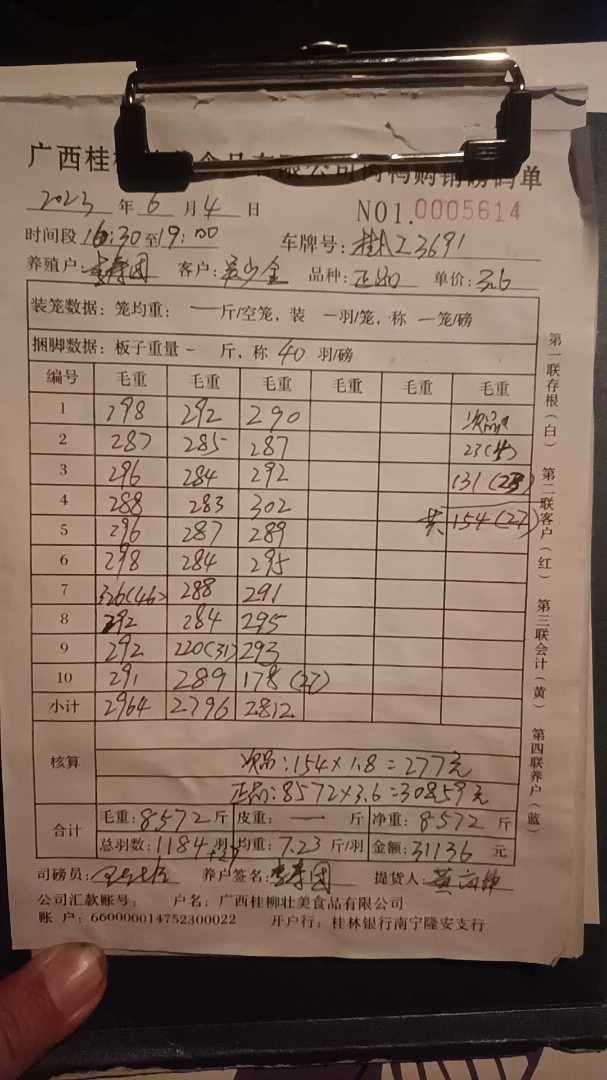 广西桂 食品有限公司肉鸭购销磅码单
2023 年 6 月 4 日 NO1.0005614
时间段 16:30 至 19:00 车牌号: 桂AZ3691
养殖户: 客户: 吴少金 品种: 正品 单价: 3.6
装笼数据: 笼均重: — 斤/空笼, 装 —羽/笼, 称 —笼/磅
捆脚数据: 板子重量 - 斤, 称 40 羽/磅
编号 毛重 毛重 毛重 毛重 毛重 毛重
1 298 292 290 次品
2 287 285 287 23(4)
3 296 284 292 131(23)
4 288 283 302 共154(27)
5 296 287 289
6 298 284 295
7 326(46) 288 291
8 292 284 295
9 292 220(31) 293
10 291 289 178(27)
小计 2964 2796 2812
核算
次品:154×1.8=277元
正品:8572×3.6=30859元
合计 毛重: 8572 斤 皮重: — 斤 净重: 8572 斤
总羽数: 1184 羽 +27 均重: 7.23 斤/羽 金额: 31136 元
司磅员: 养户签名: 提货人:
公司汇款账号: 户名: 广西桂柳壮美食品有限公司
账 户: 660000014752300022 开户行: 桂林银行南宁隆安支行
第一联存根(白) 第二联客户(红) 第三联会计(黄) 第四联养户(蓝)